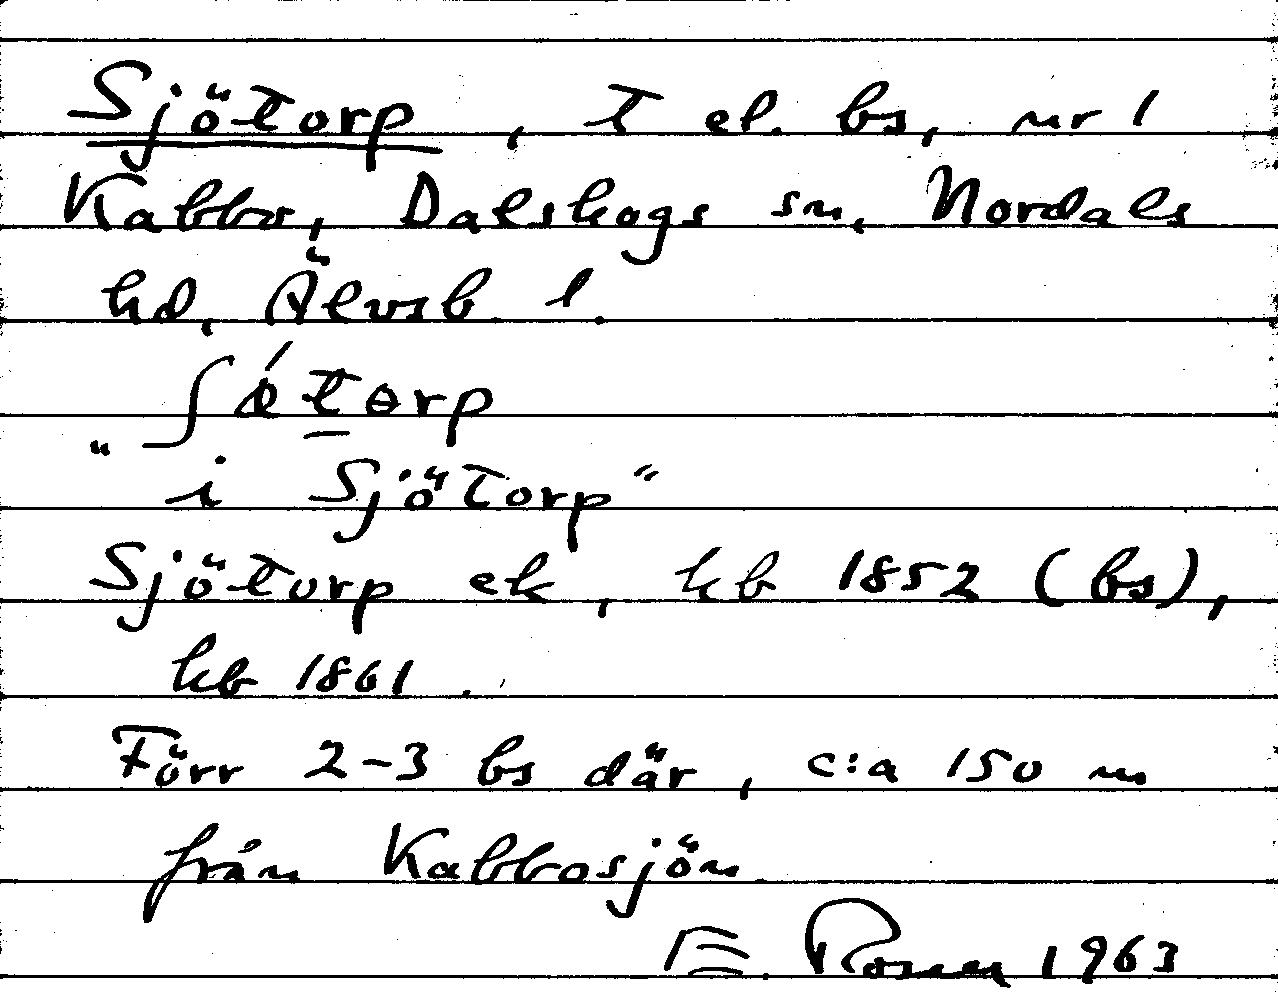 Sjötorp, t el. bs, nr 1
Kabbo, Dalskogs sn, Nordals
hd, Älvsb. l.
ʃǿtɵrp
"i Sjötorp"
Sjötorp ek, kb 1852 (bs),
kb 1861.
Förr 2-3 bs där, c:a 150 m
från Kabbosjön.
E. Rosén 1963